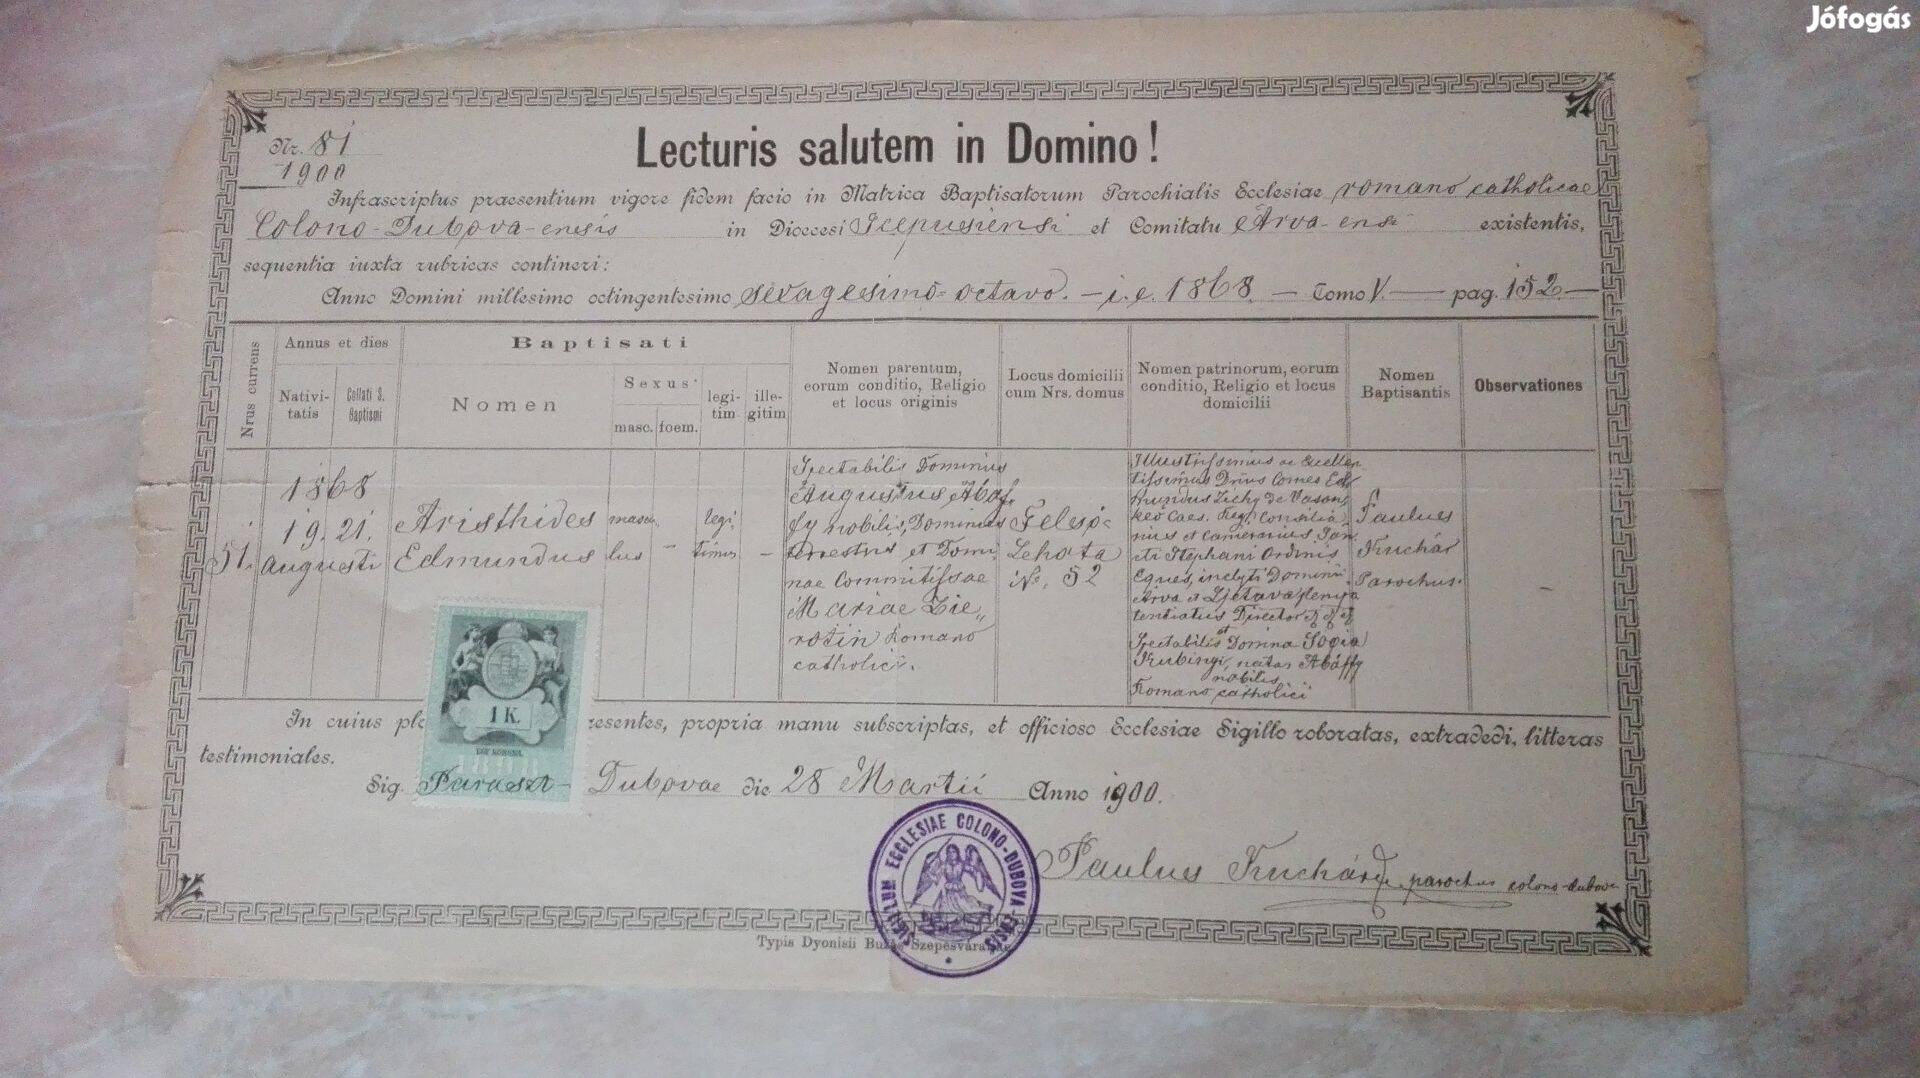 Jófogás
Nr. 81
1900
Lecturis salutem in Domino!
Infrascriptus praesentium vigore fidem facio in Matrica Baptisatorum Parochialis Ecclesiae romano catholicae
Colono-Dubova-ensis in Dioecesi Scepusiensi et Comitatu Arva-ensi existentis,
sequentia iuxta rubricas contineri:
Anno Domini millesimo octingentesimo sexagesimo-octavo. — i. e. 1868. — Tomo V. — pag. 152 —
Nrus currens
Annus et dies
Nativi-
tatis
Collati S.
Baptismi
Baptisati
Nomen
Sexus
masc.
foem.
legi-
tim
ille-
gitim
Nomen parentum,
eorum conditio, Religio
et locus originis
Locus domicilii
cum Nrs. domus
Nomen patrinorum, eorum
conditio, Religio et locus
domicilii
Nomen
Baptisantis
Observationes
51.
1868
19. 21.
augusti
Aristhides
Edmundus
mascu
lus
–
legi,
timus
–
Spectabilis Dominus
Augustus Abaf,
fy nobilis, Dominus
terrestris et Domi
nae Commitissae
Mariae Zie,,
rotin Romano
catholici.
Felsö-
Lehota
No. 52
Illustrissimus ac Excellen
tissimus Dnus Comes Ed
mundus Zichy de Vason,
keö Caes. Reg. Consilia
rius et Camerarius San
cti Stephani Ordinis
Eques, inclyti Dominii
Arva et
tentiatus Director
et
Spectabilis Domina
Kubinyi, natas Abáffy
nobilis
Romano catholici
Paulus
Kuchár
Parochus.
–
In cuius resentes, propria manu subscriptas, et officioso Ecclesiae Sigillo roboratas, extradedi, litteras
testimoniales.
1 K.
EGY KORONA
Sig. Paraszt- Dubovae die 28 Martii Anno 1900.
SIGILLUM ECCLESIAE COLONO-DUBOVA-ENSIS
Paulus Kuchár parochus colono-dubov
Typis Dyonisii Szepesvárallja